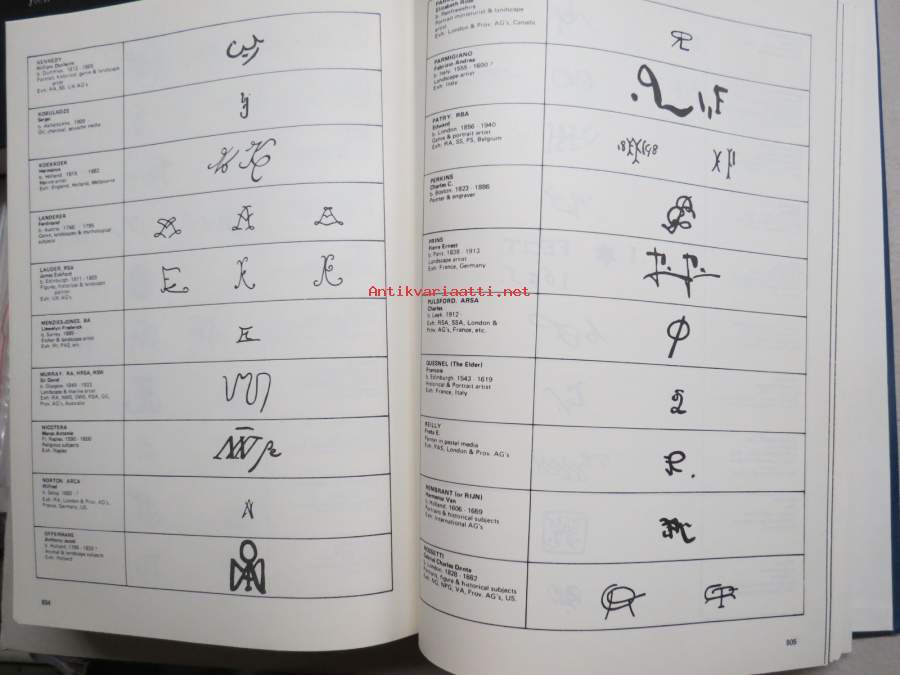 KENNEDY
William Denholm
b. Dumfries. 1813 - 1865
Portrait, historical, genre & landscape
artist
Exh: RA, SS, UK AG's
Serge
Oil, charcoal, acrylic media
KOEKKOEK
Hermanus
b. Holland. 1815 - 1882
Marine artist
Exh: England, Holland, Melbourne
LANDERER
Ferdinand
b. Austria. 1746 - 1795
Genre, landscapes & mythological
subjects
LAUDER, RSA
James Eckford
b. Edinburgh 1811 - 1869
Figures, historical & landscape
painter
Exh: UK AG's
MENZIES-JONES, RA
Llewelyn Frederick
b. Surrey. 1889 -
Etcher & landscape artist
MURRAY. RA, HRSA, RSW
Sir David
b. Glasgow. 1849 - 1933
Landscape & marine artist
Prov. AG's, Australia
NICOTERA
Marco Antonio
Fl. Naples. 1590 - 1600
Religious subjects
Exh: Naples
NORTON. ARCA
Wilfred
Exh: RA, London & Prov. AG's,
France, Germany, US.
Anthony Jacob
Animal & landscape subjects
Exh: Holland
604
Elizabeth Rose
b. Renfrewshire
Portrait miniaturist & landscape
artist
Exh: London & Prov. AG's, Canada
PARMIGIANO
Fabrizio Andrea
b. Italy. 1555 - 1600 ?
Landscape artist
Exh: Italy
PATRY. RBA
Edward
b. London. 1856 - 1940
Genre & portrait artist
Exh: RA, SS, PS, Belgium
PERKINS
Charles C.
b. Boston. 1823 - 1886
Painter & engraver
PRINS
Pierre Ernest
b. Paris. 1838 - 1913
Landscape artist
Exh: France, Germany
PULSFORD. ARSA
Charles
b. Leek. 1912 -
Exh: RSA, SSA, London &
Prov. AG's, France, etc.
QUESNEL (The Elder)
Francois
b. Edinburgh 1543 - 1619
Historical & Portrait artist
Exh: France, Italy
REILLY
Freta E.
Painter in pastel media
Exh: PAS, London & Prov. AG's
REMBRANT (or RIJN)
Harmensz Van
b. Holland. 1606 - 1669
Portraits & historical subjects
Exh: International AG's
ROSSETTI
Gabriel Charles Dante
b. London. 1828 - 1882
Portrait, figure & historical subjects
Exh: NG, NPG, VA, Prov. AG's, US.
605
Antikvariaatti.net